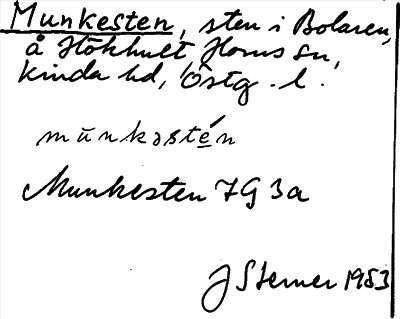 Munkesten, sten i Bolaren,
å Hökhult, Horns sn,
Kinda hd, Östg. l.
mūnkəstén
Munkesten 7G 3a
J Sterner 1953